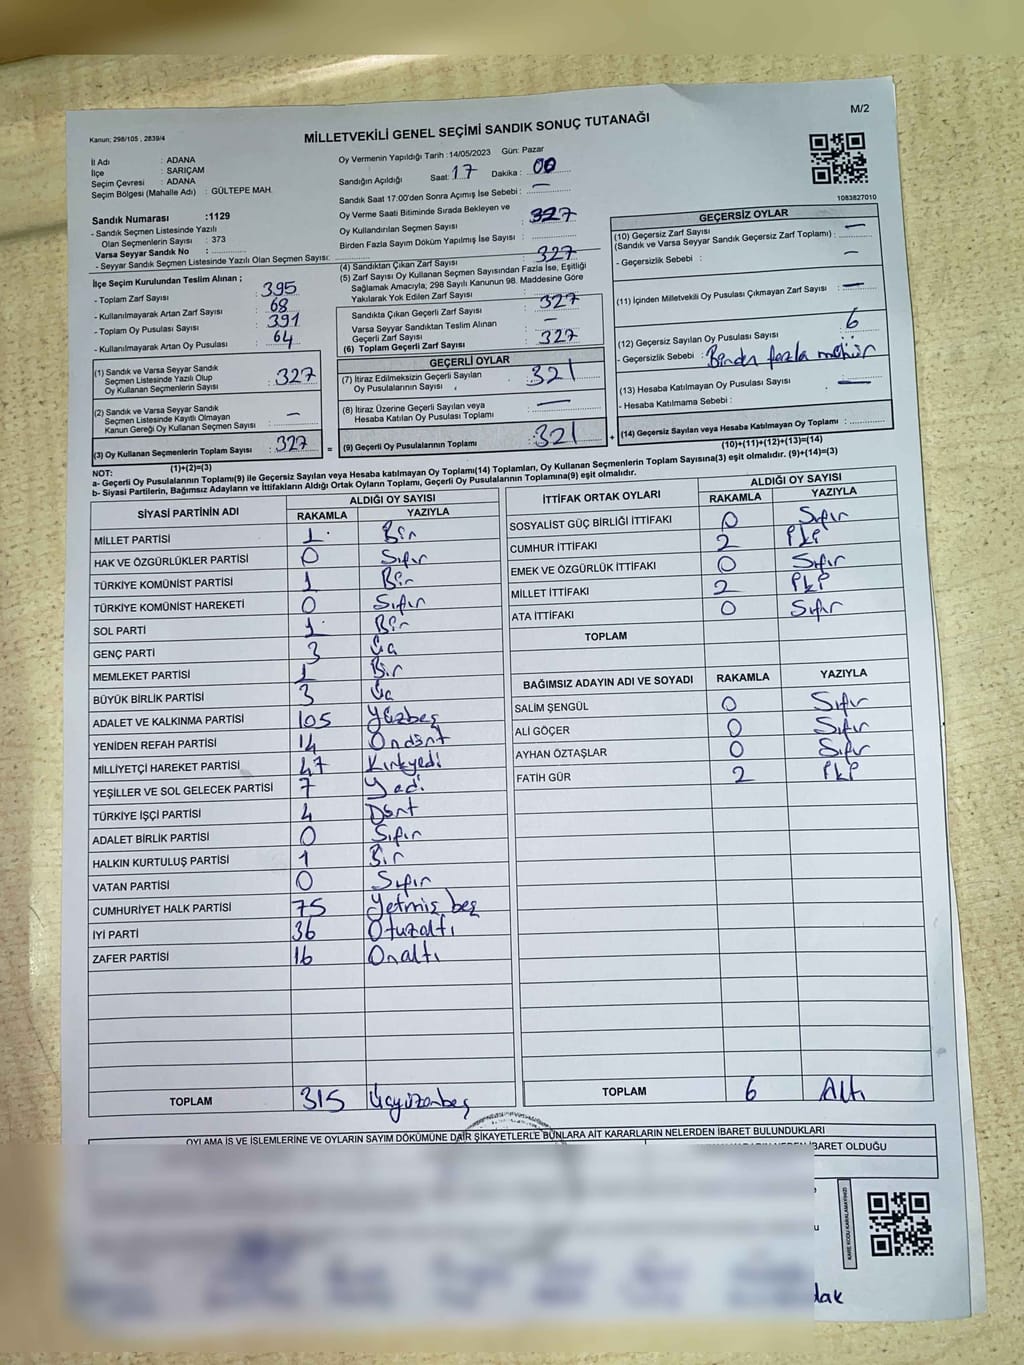 Kanun; 298/105 , 2839/4
MİLLETVEKİLİ GENEL SEÇİMİ SANDIK SONUÇ TUTANAĞI
M/2
İl Adı : ADANA
İlçe : SARIÇAM
Seçim Çevresi : ADANA
Seçim Bölgesi (Mahalle Adı) : GÜLTEPE MAH.
Sandık Numarası :1129
- Sandık Seçmen Listesinde Yazılı
Olan Seçmenlerin Sayısı : 373
Varsa Seyyar Sandık No :
- Seyyar Sandık Seçmen Listesinde Yazılı Olan Seçmen Sayısı:
Oy Vermenin Yapıldığı Tarih :14/05/2023 Gün: Pazar
Sandığın Açıldığı Saat: 17 Dakika : 00
Sandık Saat 17:00'den Sonra Açımış İse Sebebi : —
Oy Verme Saati Bitiminde Sırada Bekleyen ve
Oy Kullandırılan Seçmen Sayısı : 327
Birden Fazla Sayım Döküm Yapılmış İse Sayısı :
1083827010
İlçe Seçim Kurulundan Teslim Alınan ;
- Toplam Zarf Sayısı : 395
- Kullanılmayarak Artan Zarf Sayısı : 68
- Toplam Oy Pusulası Sayısı : 391
- Kullanılmayarak Artan Oy Pusulası : 64
(1) Sandık ve Varsa Seyyar Sandık
Seçmen Listesinde Yazılı Olup
Oy Kullanan Seçmenlerin Sayısı : 327
(2) Sandık ve Varsa Seyyar Sandık
Seçmen Listesinde Kayıtlı Olmayan
Kanun Gereği Oy Kullanan Seçmen Sayısı : —
(3) Oy Kullanan Seçmenlerin Toplam Sayısı : 327
(4) Sandıktan Çıkan Zarf Sayısı : 327
(5) Zarf Sayısı Oy Kullanan Seçmen Sayısından Fazla İse, Eşitliği
Sağlamak Amacıyla, 298 Sayılı Kanunun 98. Maddesine Göre
Yakılarak Yok Edilen Zarf Sayısı :
Sandıkta Çıkan Geçerli Zarf Sayısı : 327
Varsa Seyyar Sandıktan Teslim Alınan
Geçerli Zarf Sayısı : —
(6) Toplam Geçerli Zarf Sayısı : 327
GEÇERLİ OYLAR
(7) İtiraz Edilmeksizin Geçerli Sayılan
Oy Pusulalarının Sayısı : 321
(8) İtiraz Üzerine Geçerli Sayılan veya
Hesaba Katılan Oy Pusulası Toplamı : —
= (9) Geçerli Oy Pusulalarının Toplamı : 321
GEÇERSİZ OYLAR
(10) Geçersiz Zarf Sayısı : —
(Sandık ve Varsa Seyyar Sandık Geçersiz Zarf Toplamı) :
- Geçersizlik Sebebi : —
(11) İçinden Milletvekili Oy Pusulası Çıkmayan Zarf Sayısı : —
(12) Geçersiz Sayılan Oy Pusulası Sayısı : 6
- Geçersizlik Sebebi : Birden fazla mühür
(13) Hesaba Katılmayan Oy Pusulası Sayısı : —
- Hesaba Katılmama Sebebi :
+ (14) Geçersiz Sayılan veya Hesaba Katılmayan Oy Toplamı :
(1)+(2)=(3)
(10)+(11)+(12)+(13)=(14)
NOT:
a- Geçerli Oy Pusulalarının Toplamı(9) ile Geçersiz Sayılan veya Hesaba katılmayan Oy Toplamı(14) Toplamları, Oy Kullanan Seçmenlerin Toplam Sayısına(3) eşit olmalıdır. (9)+(14)=(3)
b- Siyasi Partilerin, Bağımsız Adayların ve İttifakların Aldığı Ortak Oyların Toplamı, Geçerli Oy Pusulalarının Toplamına(9) eşit olmalıdır.
SİYASİ PARTİNİN ADI ALDIĞI OY SAYISI
RAKAMLA YAZIYLA
MİLLET PARTİSİ 1 Bir
HAK VE ÖZGÜRLÜKLER PARTİSİ 0 Sıfır
TÜRKİYE KOMÜNİST PARTİSİ 1 Bir
TÜRKİYE KOMÜNİST HAREKETİ 0 Sıfır
SOL PARTİ 1 Bir
GENÇ PARTİ 3 Üç
MEMLEKET PARTİSİ 1 Bir
BÜYÜK BİRLİK PARTİSİ 3 Üç
ADALET VE KALKINMA PARTİSİ 105 Yüzbeş
YENİDEN REFAH PARTİSİ 14 Ondört
MİLLİYETÇİ HAREKET PARTİSİ 47 Kırkyedi
YEŞİLLER VE SOL GELECEK PARTİSİ 7 Yedi
TÜRKİYE İŞÇİ PARTİSİ 4 Dört
ADALET BİRLİK PARTİSİ 0 Sıfır
HALKIN KURTULUŞ PARTİSİ 1 Bir
VATAN PARTİSİ 0 Sıfır
CUMHURİYET HALK PARTİSİ 75 Yetmiş beş
İYİ PARTİ 36 Otuzaltı
ZAFER PARTİSİ 16 Onaltı
TOPLAM 315 Üçyüzonbeş
İTTİFAK ORTAK OYLARI ALDIĞI OY SAYISI
RAKAMLA YAZIYLA
SOSYALİST GÜÇ BİRLİĞİ İTTİFAKI 0 Sıfır
CUMHUR İTTİFAKI 2 İki
EMEK VE ÖZGÜRLÜK İTTİFAKI 0 Sıfır
MİLLET İTTİFAKI 2 İki
ATA İTTİFAKI 0 Sıfır
TOPLAM
BAĞIMSIZ ADAYIN ADI VE SOYADI RAKAMLA YAZIYLA
SALİM ŞENGÜL 0 Sıfır
ALİ GÖÇER 0 Sıfır
AYHAN ÖZTAŞLAR 0 Sıfır
FATİH GÜR 2 İki
TOPLAM 6 Altı
OYLAMA İŞ VE İŞLEMLERİNE VE OYLARIN SAYIM DÖKÜMÜNE DAİR ŞİKAYETLERLE BUNLARA AİT KARARLARIN NELERDEN İBARET BULUNDUKLARI
İBARET OLDUĞU
KARE KODU KARALAMAYINIZ!
dak